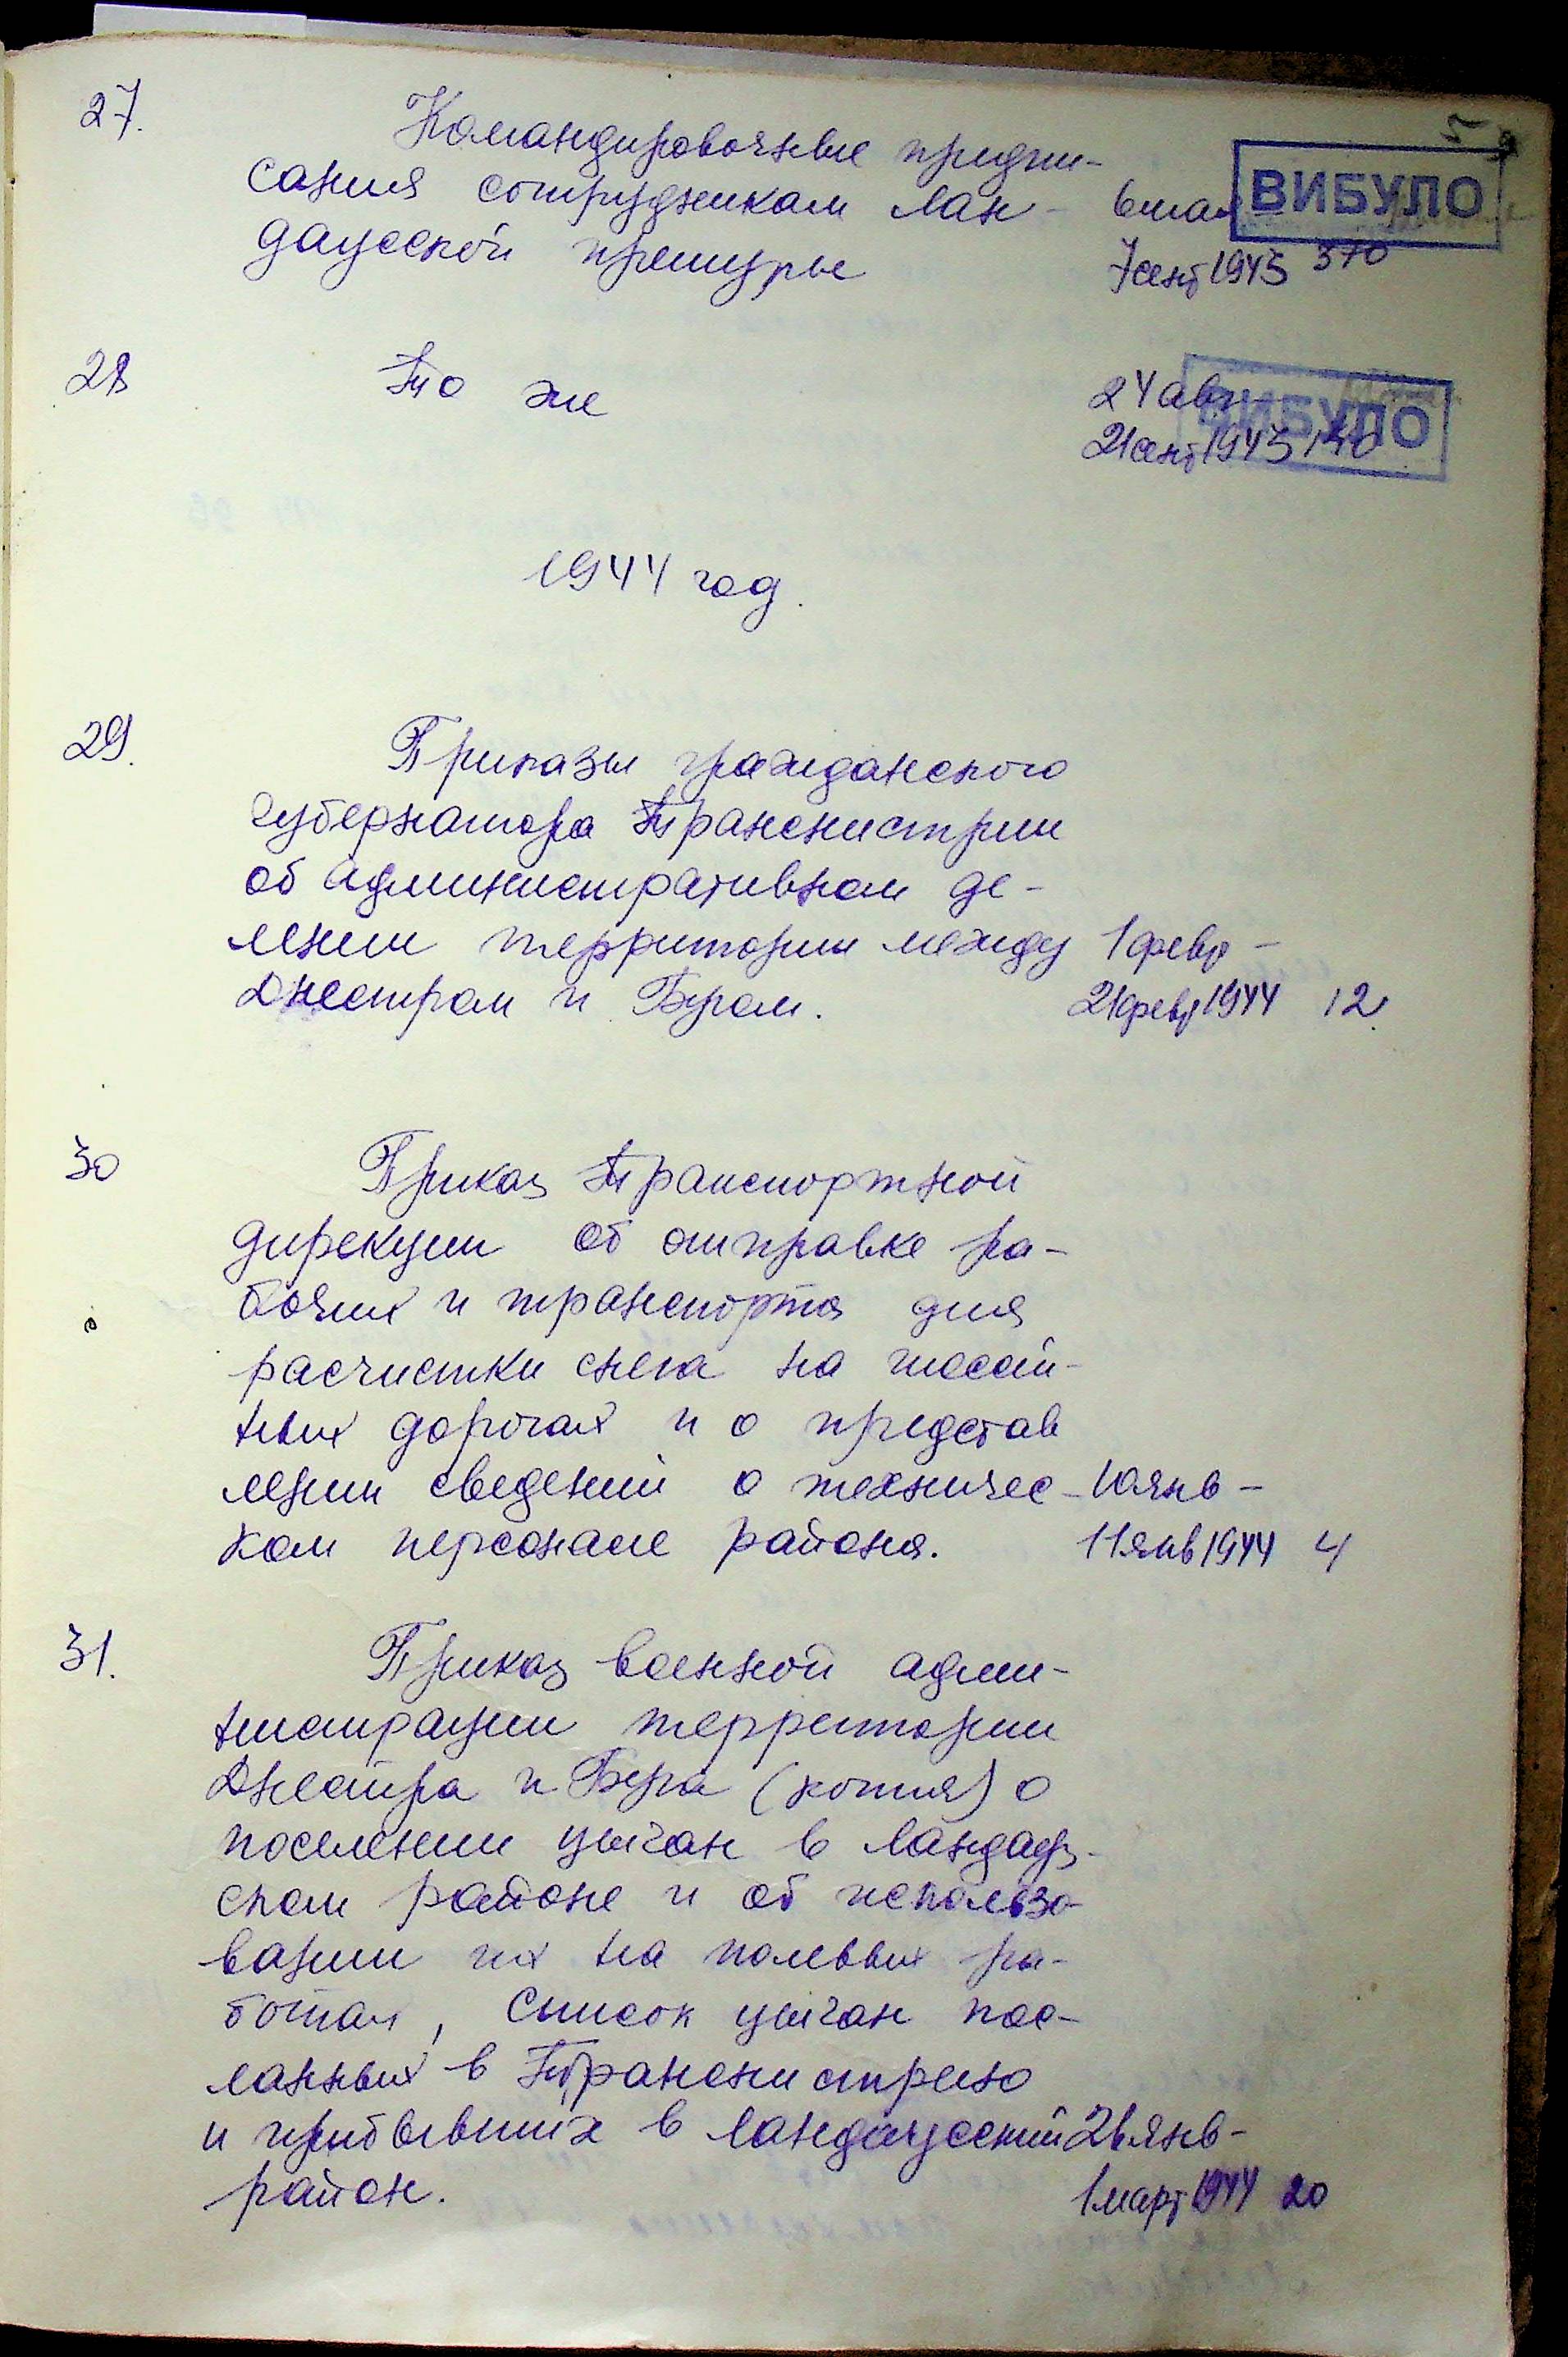 5
27. Командировочные предпи-
сания сотрудникам Лан-
дауской претуры
6 мая
7 сент 1943 370
ВИБУЛО
28 То же
24 авг-
21 сент 1943
ВИБУЛО
1944 год.
29. Приказы гражданского
губернатора Транснистрии
об административном де-
лении территории между 1 февр -
Днестром и Бугом. 21 февр 1944 12
30 Приказ Транспортной
дирекции об отправке ра-
бочих и транспорта для
расчистки снега на шоссей-
ных дорогах и о представ
лении сведений о техничес- 10 янв -
ком персонале района. 11 янв 1944 4
31. Приказ военной адми-
нистрации территории
Днестра и Буга (копия) о
поселении цыган в Ландау-
ском районе и об использо-
вании их на полевых ра-
ботах, список цыган пос-
ланных в Транснистрию
и прибывших в Ландауский 26 янв-
район. 1 март 1944 20